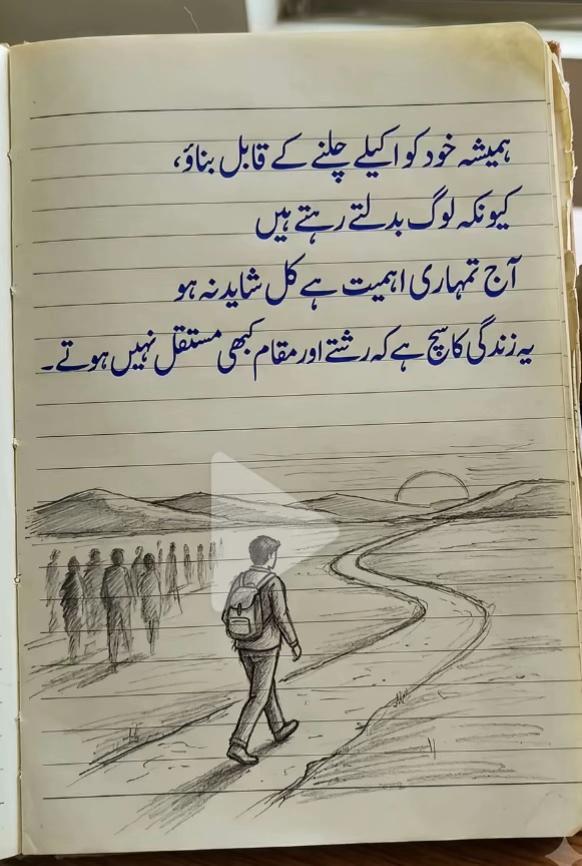 ہمیشہ خود کو اکیلے چلنے کے قابل بناؤ،
کیونکہ لوگ بدلتے رہتے ہیں
آج تمہاری اہمیت ہے کل شاید نہ ہو
یہ زندگی کا سچ ہے کہ رشتے اور مقام کبھی مستقل نہیں ہوتے۔